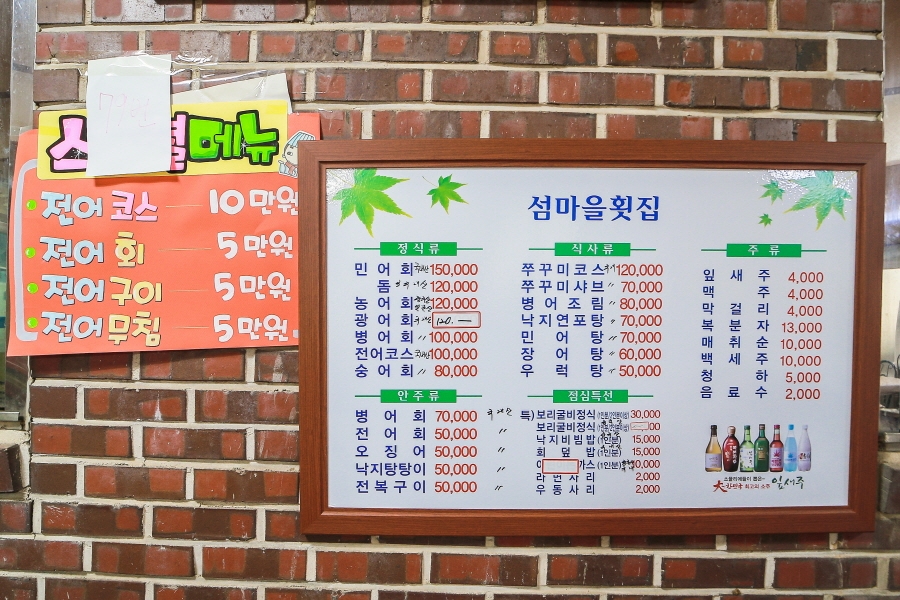 메뉴
전어 코스 10만원
전어 회 5만원
전어 구이 5만원
전어 무침 5만원
섬마을횟집
정식류
민어회 150,000
돔 120,000
농어회 120,000
광어회 120.―
병어회 100,000
전어코스 100,000
숭어회 80,000
안주류
병어회 70,000
전어회 50,000 〃
오징어 50,000 〃
낙지탕탕이 50,000 〃
전복구이 50,000 〃
식사류
쭈꾸미코스 120,000
쭈꾸미샤브 〃 70,000
병어조림 〃 80,000
낙지연포탕 〃 70,000
민어탕 〃 70,000
장어탕 〃 60,000
우럭탕 〃 50,000
점심특선
특) 보리굴비정식 30,000
보리굴비정식
낙지비빔밥 (1인분) 15,000
회덮밥 (1인분) 15,000
까스 (1인분)
라면사리 2,000
우동사리 2,000
주류
잎새주 4,000
맥주 4,000
막걸리 4,000
복분자 13,000
매취순 10,000
백세주 10,000
청하 5,000
음료수 2,000
잎새주